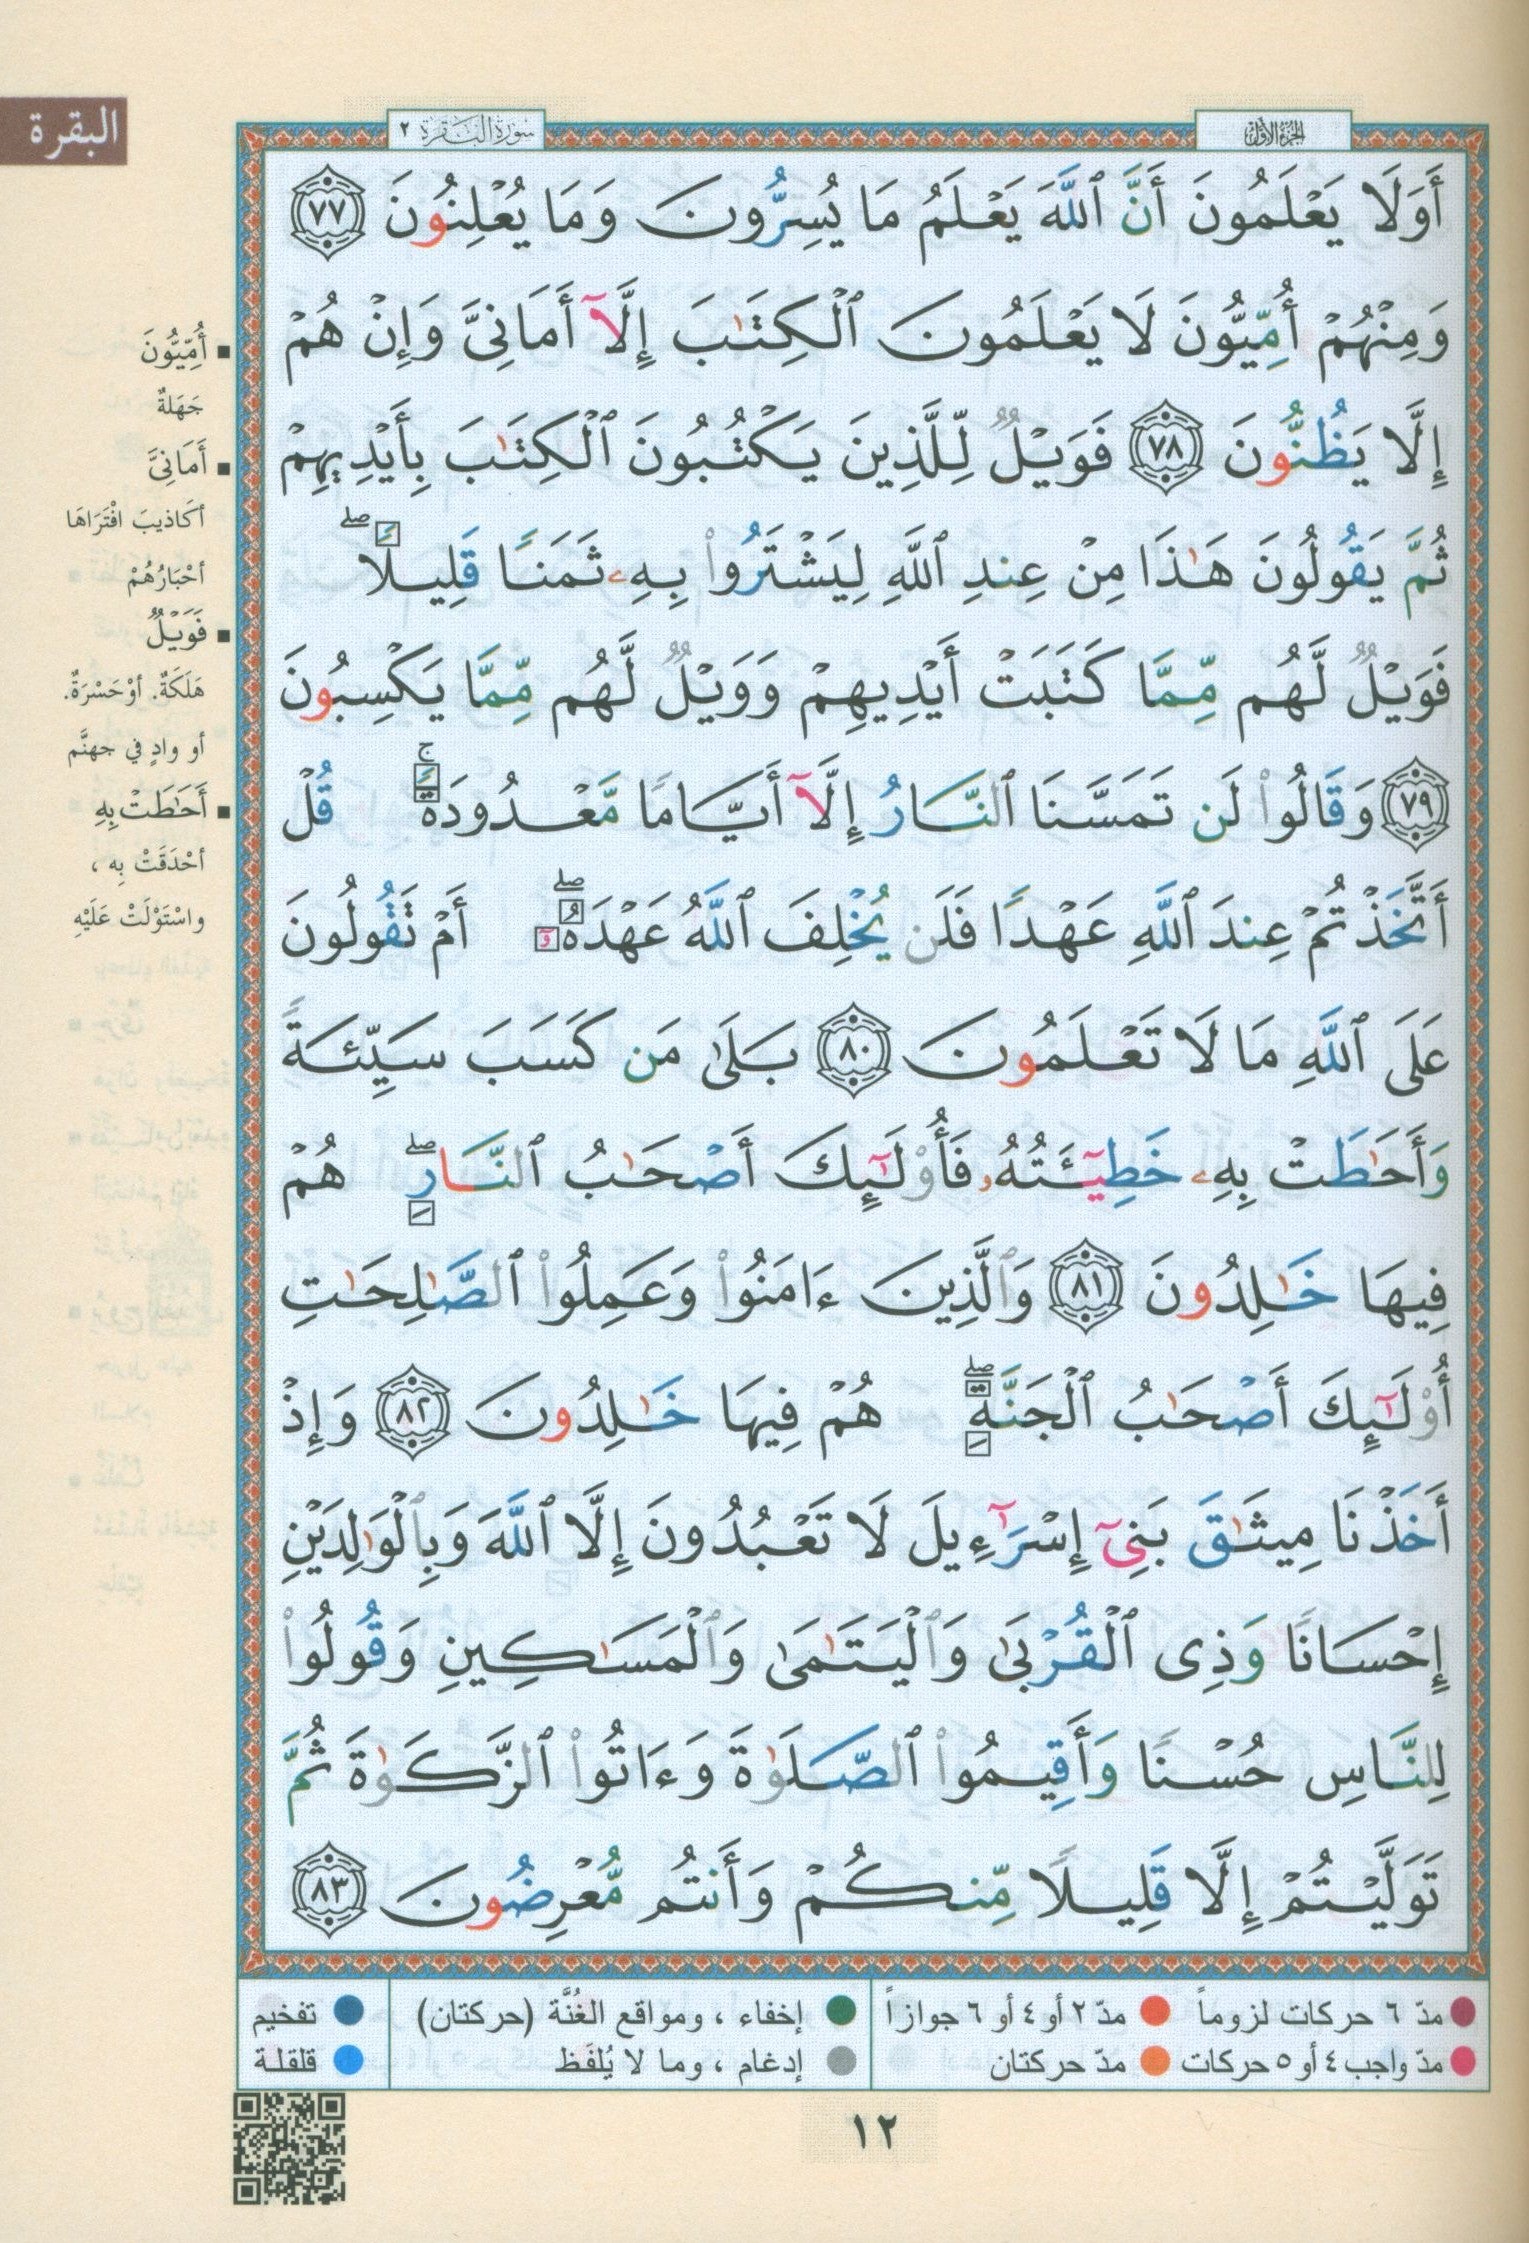 البقرة
سورة البقرة ٢
الجزء الأول
أَوَلَا يَعْلَمُونَ أَنَّ ٱللَّهَ يَعْلَمُ مَا يُسِرُّونَ وَمَا يُعْلِنُونَ ٧٧
وَمِنْهُمْ أُمِّيُّونَ لَا يَعْلَمُونَ ٱلْكِتَٰبَ إِلَّآ أَمَانِىَّ وَإِنْ هُمْ
إِلَّا يَظُنُّونَ ٧٨ فَوَيْلٌ لِّلَّذِينَ يَكْتُبُونَ ٱلْكِتَٰبَ بِأَيْدِيهِمْ
ثُمَّ يَقُولُونَ هَٰذَا مِنْ عِندِ ٱللَّهِ لِيَشْتَرُوا۟ بِهِۦ ثَمَنًا قَلِيلًا ۖ
فَوَيْلٌ لَّهُم مِّمَّا كَتَبَتْ أَيْدِيهِمْ وَوَيْلٌ لَّهُم مِّمَّا يَكْسِبُونَ
٧٩ وَقَالُوا۟ لَن تَمَسَّنَا ٱلنَّارُ إِلَّآ أَيَّامًا مَّعْدُودَةً ۚ قُلْ
أَتَّخَذْتُمْ عِندَ ٱللَّهِ عَهْدًا فَلَن يُخْلِفَ ٱللَّهُ عَهْدَهُۥٓ ۖ أَمْ تَقُولُونَ
عَلَى ٱللَّهِ مَا لَا تَعْلَمُونَ ٨٠ بَلَىٰ مَن كَسَبَ سَيِّئَةً
وَأَحَٰطَتْ بِهِۦ خَطِيٓـَٔتُهُۥ فَأُو۟لَٰٓئِكَ أَصْحَٰبُ ٱلنَّارِ ۖ هُمْ
فِيهَا خَٰلِدُونَ ٨١ وَٱلَّذِينَ ءَامَنُوا۟ وَعَمِلُوا۟ ٱلصَّٰلِحَٰتِ
أُو۟لَٰٓئِكَ أَصْحَٰبُ ٱلْجَنَّةِ ۖ هُمْ فِيهَا خَٰلِدُونَ ٨٢ وَإِذْ
أَخَذْنَا مِيثَٰقَ بَنِىٓ إِسْرَٰٓءِيلَ لَا تَعْبُدُونَ إِلَّا ٱللَّهَ وَبِٱلْوَٰلِدَيْنِ
إِحْسَانًا وَذِى ٱلْقُرْبَىٰ وَٱلْيَتَٰمَىٰ وَٱلْمَسَٰكِينِ وَقُولُوا۟
لِلنَّاسِ حُسْنًا وَأَقِيمُوا۟ ٱلصَّلَوٰةَ وَءَاتُوا۟ ٱلزَّكَوٰةَ ثُمَّ
تَوَلَّيْتُمْ إِلَّا قَلِيلًا مِّنكُمْ وَأَنتُم مُّعْرِضُونَ ٨٣
■ أُمِّيُّونَ
جَهَلةٌ
■ أَمَانِىَّ
أكَاذيبَ افْتَرَاهَا
أحْبَارُهُمْ
■ فَوَيْلٌ
هَلَكَةٌ. أوْ حَسْرَةٌ.
أو وادٍ في جهنَّم
■ أَحَٰطَتْ بِهِ
أحْدَقَتْ بِه ،
واسْتَوْلَتْ عَلَيْهِ
مدّ ٦ حركات لزوماً
مدّ ٢ أو ٤ أو ٦ جوازاً
إخفاء ، ومواقع الغُنَّة (حركتان)
تفخيم
مدّ واجب ٤ أو ٥ حركات
مدّ حركتان
إدغام ، وما لا يُلفَظ
قلقلة
١٢